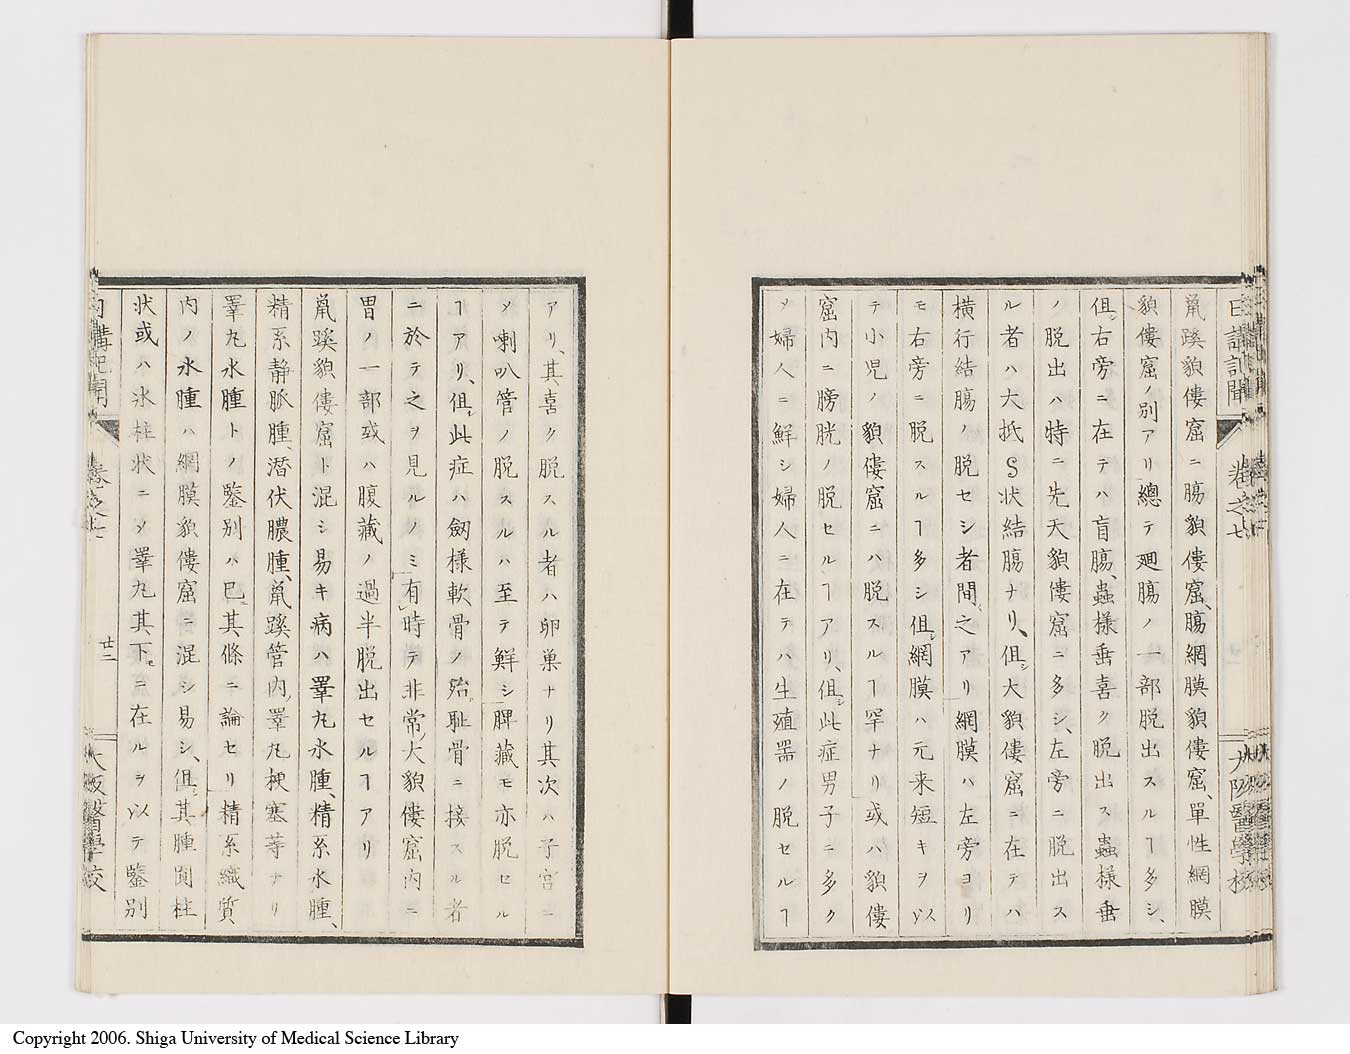 日講記聞 卷之七 大阪醫學校
鼠蹊貌僂窟ニ腸貌僂窟、腸網膜貌僂窟、單性網膜
貌僂窟ノ別アリ總テ廻腸ノ一部脱出スルヿ多シ、
但シ右旁ニ在テハ盲腸、蟲様垂喜ク脱出ス蟲様垂
ノ脱出ハ特ニ先天貌僂窟ニ多シ、左旁ニ脱出ス
ル者ハ大抵S状結腸ナリ、但シ大貌僂窟ニ在テハ
横行結腸ノ脱セシ者間〻之アリ網膜ハ左旁ヨリ
モ右旁ニ脱スルヿ多シ但シ網膜ハ元来短キヲ以
テ小児ノ貌僂窟ニハ脱スルヿ罕ナリ或ハ貌僂
窟内ニ膀胱ノ脱セルヿアリ、但シ此症男子ニ多ク
〆婦人ニ鮮シ婦人ニ在テハ生殖器ノ脱セルヿ
アリ、其喜ク脱スル者ハ卵巣ナリ其次ハ子宮ニ
〆喇叭管ノ脱スルハ至テ鮮シ脾藏モ亦脱セル
ヿアリ、但シ此症ハ劔様軟骨ノ殆ト耻骨ニ接スル者
ニ於テ之ヲ見ルノミ有時テ非常ノ大貌僂窟内ニ
胃ノ一部或ハ腹藏ノ過半脱出セルヿアリ
鼠蹊貌僂窟ト混シ易キ病ハ睪丸水腫、精系水腫、
精系静脈腫、濳伏膿腫、鼠蹊管内睪丸梗塞等ナリ
睪丸水腫トノ鑒別ハ已ニ其條ニ論セリ精系織質
内ノ水腫ハ網膜貌僂窟ニ混シ易シ、但シ其腫圓柱
状或ハ氷柱状ニ〆睪丸其下モニ在ルヲ以テ鑒別
日講記聞 卷之七 廿二 大阪醫學校
Copyright 2006. Shiga University of Medical Science Library